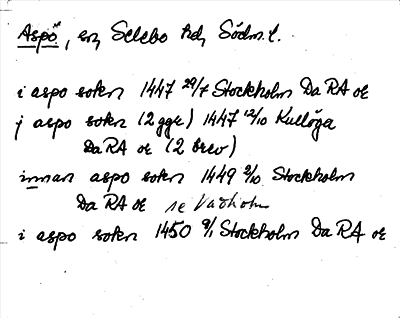 Aspö, sn, Selebo hd, Södm.l.
i aspo sokn 1447 29/7 Stockholm Da RA oe
j aspo sokn (2 ggr) 1447 12/10 Kullöga
Da RA oe (2 brev)
innan aspo sokn 1449 2/10 Stockholm
Da RA oe se Vadholm
i aspo sokn 1450 9/1 Stockholm Da RA oe